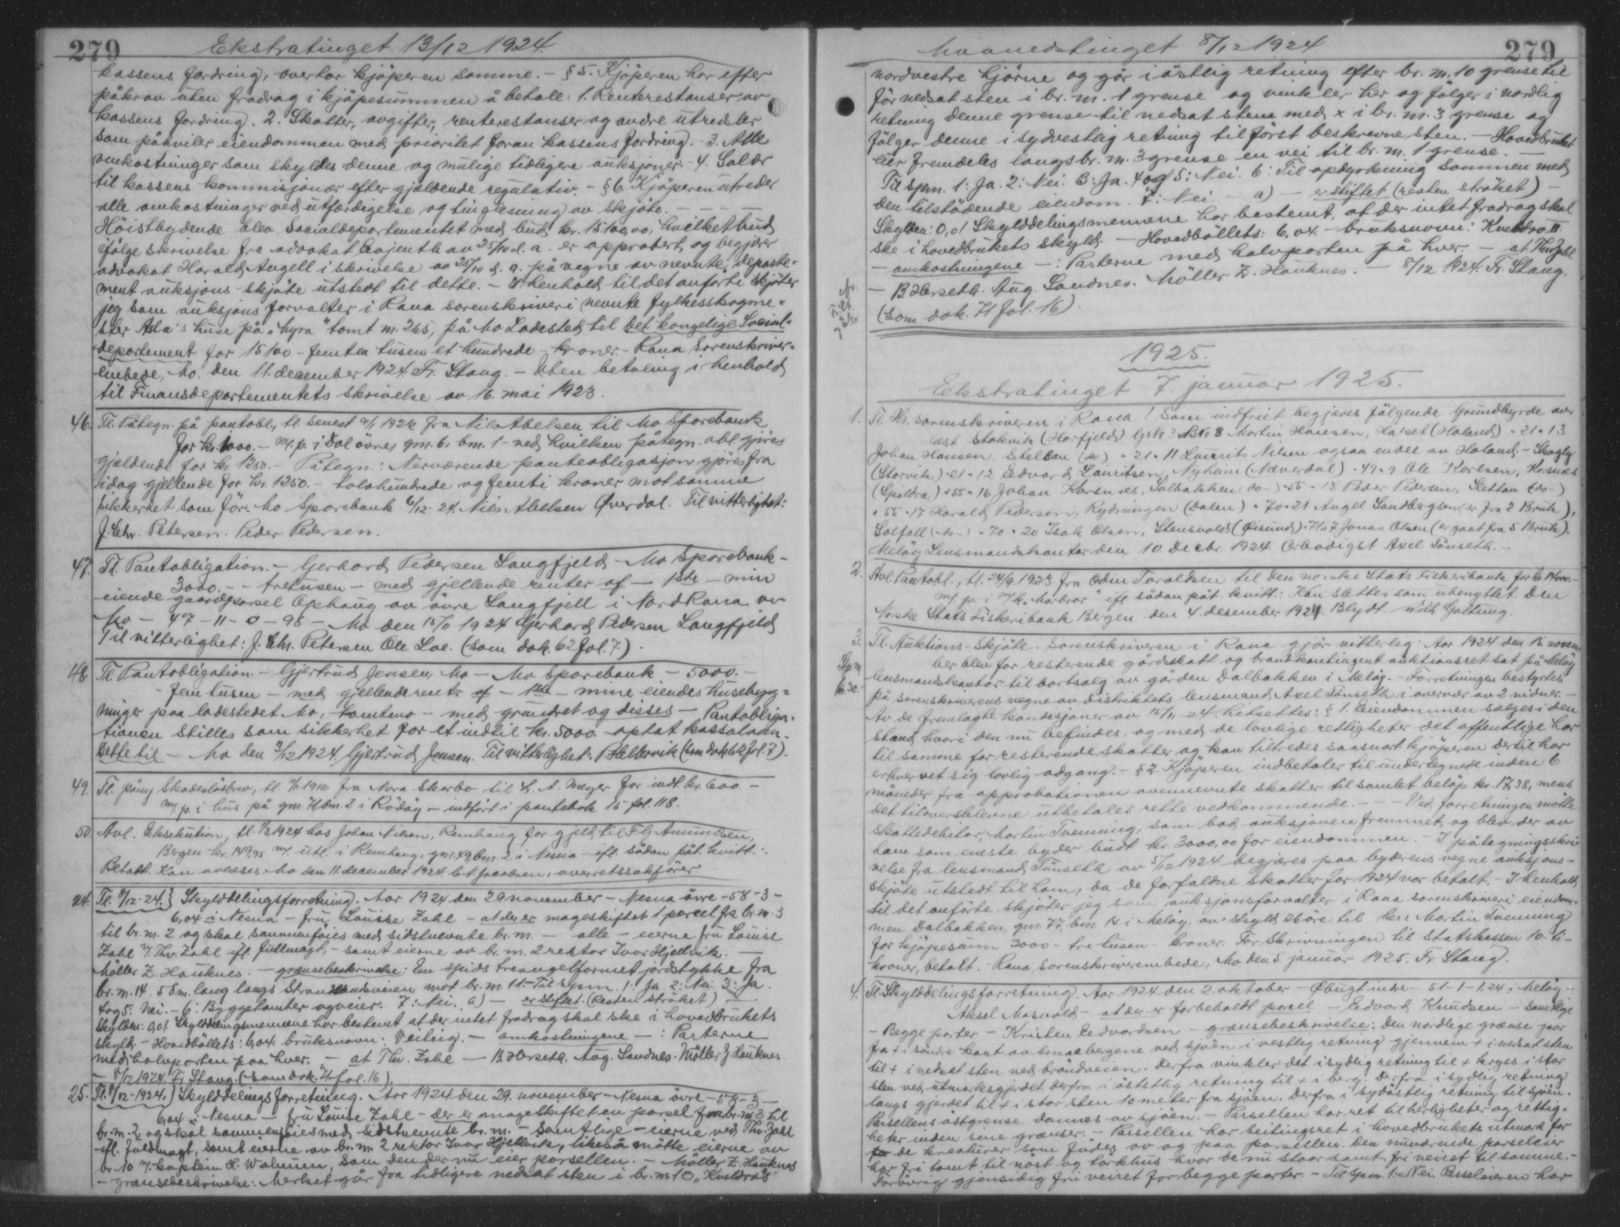 279 Ekstratinget 13/12 1924
kassens fordring, overtar kjøperen samme. - § 5. Kjøperen har efter
påkrav uten fradrag i kjøpesummen å betale: 1. Renterestanser av
kassens fordring. 2. Skatter, avgifter, renterestanser og andre utredsler
som påhviler eiendommen med prioritet foran kassens fordring. 3. Alle
omkostninger som skyldes denne og mulige tidligere auksjoner. 4. Salær
til kassens kommisjonær efter gjældende regulativ. - § 6 Kjøperen utreder
alle omkostninger ved utfærdigelse og tinglesning av skjøte.
Høistbydende blev Socialdepartementet med bud kr. 15100,00 hvilket bud
ifølge skrivelse fra advokat av 25/10 d. a. er approbert, og begjærer
advokat Harald Angell i skrivelse av 28/10 d. a. på vegne av nevnte departe-
ment auksjons-skjøte utstedt til dette. - I henhold til det anførte skjøter
jeg som auksjonsforvalter i Rana sorenskriveri nevnte fylkesskogme-
ster Asla's huse på "Lyra" tomt nr. 265, på Mo Ladested til Det kongelige Social-
departement for 15100 - femten tusen et hundrede kroner. - Rana Sorenskriver-
embede, Mo, den 11. december 1924. Fr. Stang. - Uten betaling i henhold
til Finansdepartementets skrivelse av 16. mai 1923.
46. Tl. Påtegn. på pantobl. tl. senest 1924 fra Nils Abelsen til Mo Sparebank
for kr. 1000. - m/ p. i Dal øvre, gnr. 6. bnr. 1 - ved hvilken påtegn. obl. gjøres
gjældende for kr. 1250. - Påtegn.: Nærværende panteobligasjon gjøres fra
idag gjellende for kr. 1250. - tolvhundrede og femti kroner mot samme
sikkerhet som før. Mo Sparebank 6/12 - 24. Nils Abelsen Øverdal. Til vitterlighet:
J. Chr. Petersen. Peder Pedersen.
47. Tl. Pantobligation. - Gerhard Pedersen Langfjeld - Mo Sparebank -
3000. - tretusen - med gjellende renter af - 1ste - min
eiende gaardparsel Ophaug av øvre Langfjell i Nord Rana av
- 47 - 11 - 0 - 95 - Mo den 15/11 1924 Gerhard Pedersen Langfjeld
Til vitterlighet: J. Chr. Petersen Ole Loe. (som dok. 62 fol. 7).
48. Tl. Pantobligation. - Gjertrud Jensen Mo - Mo Sparebank - 5000. -
- fem tusen - med gjellende rentr af - 1ste - mine eiendes husebyg-
ninger paa ladestedet Mo, tomtno - med grundret og disses - Pantobliga-
tionen stilles som sikkerhet for et indtil kr. 5000. - optat kassalaan.
Dette til - Mo den 3/12 1924 Gjertrud Jensen. Til vitterlighet: (som dok. 62 fol. 7).
49. Tl. Skadesløsbrev, tl. 1910 fra Nora Skarbo til L. A. Meyer for indtl. kr. 600. -
m/ p. i hus på gnr. bnr. 2 i Rødøy - indført i pantebok 15 fol. 118.
50. Avl. Eksekution, tl. 1924 hos Johan Nilsen, Remhaug for gjeld til Amundsen,
Bergen kr. 149,95 m/ utl. i Remhaug, gnr. 49 bnr. 2 i Nesna - ifl. sådan påt. kvitt.:
Betalt. Kan avleses. Mo den 11 december 1924. Jacobsen, overretssakfører
24. Tl. 8/12 - 24. Skylddelingsforretning. Aar 1924 den 29 november - Nesna øvre - 58 - 3 -
6,04 - i Nesna - fru Louise Zahl - at der er mageskiftet 1 parcel fra br. nr. 3
til br. nr. 2 og skal sammenføies med sidstnevnte br. nr. - alle - eierne fru Louise
Zahl v/ Thv. Zahl ifl. fuldmagt, - samt eierne av br. nr. 2 rektor Ivar Hjellvik. -
Møller Z. Hauknes. - grænsebeskrivelse: En spids treangelformet jordstykke fra
br. nr. 14. 58 m. lang langs Strandveien mot br. nr. 15 - Til spm. 1: Ja. 2: Nei 3: Ja.
4 og 5: Nei. - 6: Byggetomter og veier. 7: Nei. a) - er stiftet (resten strøket) -
Skylden: 0,01 Skylddelingsmennene har bestemt at der intet fradrag skal ske i hovedbrukets
skyld. - Hovedbøllets: 6,04. bruksnavn: - omkostningene - : Parterne
med halvparten paa hver. - at Thv. Zahl - B. Hersetk. Aug. Sandnes. Møller Z. Hauknes
- 8/12 1924. Fr. Stang. (som dok. 71 fol. 16)
25. Tl. 8/12 - 1924. Skylddelingsforretning. Aar 1924 den 29. november - Nesna øvre - 58 - 3 -
6,04 - i Nesna - fru Louise Zahl - der er mageskiftet en parsel fra br. nr. 3 til
br. nr. 2 og skal sammenføies med sidstnevnte br. nr. - samtlige - eierne ved Thv. Zahl
ifl. fuldmagt, samt eierne av br. nr. 2 rektor Ivar Hjellvik, likeså møtte eierne av
br. No 7. kaptein H. som den der nu eier parsellen. - Møller Z. Hauknes
- grænsebeskrivelse: Merket går fra tidligere nedsat sten i br. nr. 10 "Kveldro's
Maanedstinget 8/12 1924 279
nordvestre hjørne og går i østlig retning efter br. nr. 10 grense til
før nedsat sten i br. nr. 1 grense og vinkler her og følger i nordlig
retning denne grense til nedsat stein med x i br. nr. 3 grense og
følger denne i sydvestlig retning til først beskrevne sten. - Hovedbruket
har fremdeles langs br. nr. 3 grense en vei til br. nr. 1 grense. -
Til spm. 1: Ja. 2: Nei 3: Ja. 4 og 5: Nei. 6: Til opdyrkning sammen med
den tilstødende eiendom. 7: Nei - a) - er stiftet (resten strøket) -
Skylden: 0,01 Skylddelingsmennene har bestemt, at der intet fradrag skal
ske i hovedbrukets skyld - Hovedbøllets: 6,04 - bruksnavn: Kveldro II.
- omkostningene - : Parterne med halvparten på hver. - at Thv. Zahl
- B. Hersetk. Aug. Sandnes. Møller Z. Hauknes. - 8/12 1924. Fr. Stang.
(som dok. 71 fol. 16).
1925.
Ekstratinget 7. januar 1925.
1. Tl. Hr. sorenskriveren i Rana! Som indfriet begjeres følgende Grundbyrde av-
læst Stokvik (Horfjeld) Gr. № 3 B. № 8 Martin Hansen, Halset (Holand) - 21 - 13
Johan Hansen, - 21 - 11 Laurits Nilsen ogsaa endel av Holand -
(Storvik) - 21 - 12 Edvard Lauritsen, Nyheim (Neverdal) - 49 - 9 Ole Karlsen,
(Gjeldra) - 55 - 16 Johan Korsnes, Solbakken (do-) - 55 - 13 Peder Pedersen, Slettan (do-)
- 55 - 17 Harald Pedersen, Rydningen (Dalen) - 70 - 21 Angel Sandbergsen (er fra 2 Bruk),
Solfall (-do-) - 70 - 20 Isak Olsen, Stensvold (Ørsund) - 71 - 7 Jonas Olsen (er gaat fra 5 Bruk).
Meløy Lensmandskontor den 10 decbr. 1924. Ærbødigst Axel Tønseth. -
2. Avl. Pantobl., tl. 24/9 1923 fra Odin Toraldsen til Den norske Stats Fiskeribank for kr.
m/ p. i m/k. "Nordvar" ifl. sådan påt. kvitt: Kan slettes som ubenyttet. Den
Norske Stats Fiskeribank Bergen den 4. desember 1924 Blydt Nils Gulting.
3. Tl. Auktions-skjøte. Sorenskriveren i Rana gjør vitterlig: Aar 1924 den 15 novem-
ber blev for resterende gårdskatt og brandkontingent auktionsret sat på Meløy
lensmandskontor til bortsalg av gården Dalbakken i Meløy. - Forretningen bestyrtes
på sorenskriverens vegne av distriktets lensmand Axel Tønseth i overvær av 2 vidner. -
Av de fremlagte kondisjoner av 15/11 24 hitsettes: § 1. Eiendommen sælges i den
stand hvori den nu befindes og med de lovlige rettigheter det offentlige har
til samme for resterende skatter, og kan tiltredes saasnart kjøperen dertil har
erhvervet sig lovlig adgang. - § 2. Kjøperen indbetaler til undertegnede inden 6
måneder fra approbationen ovennevnte skatter til samlet beløp kr. 17,38, mens
det tiloversblevne utbetales rette vedkommende. - - - Ved forretningen møtte
skattedebitor Martin Toenning, som bad auksjonen fremmet, og blev der av
ham som eneste byder budt kr. 3000,00 for eiendommen. - I påtegningsskri-
velse fra lensmand Tønseth av 5/12 1924 begjæres paa byderens vegne auksjons-
skjøte utstedt til ham, da de forfaldne skatter for 1924 var betalt. - I henhold
til det anførte skjøter jeg som auksjonsforvalter i Rana sorenskriveri eiendom-
men Dalbakken, gnr. 77, bnr. 12 i Meløy, av skyld 26 øre til herr Martin Toenning
for kjøpesum 3000 - tre tusen - kroner. For skrivningen til statskassen 10 - ti -
kroner, betalt. - Rana sorenskriverembede, Mo den 5. januar 1925. Fr. Stang.
4. Tl. Skylddelingsforretning. Aar 1924 den 2. oktober - Ørbugt indre - 51 - 1 - 1,24 i Meløy. -
Aksel Mosvold - at der er forbeholdt parcel - Edvard Knudsen - samtlige
- Begge parter - Kristen Edvardsen - grænsebeskrivelse: Den nordlige grænse gaar
fra + i søndre kant av smaabergene ved sjøen i vestlig retning gjennem + i nedsat sten
til + i nedsat sten ved brandveien. Derfra vinkler det i sydlig retning til + kryss i stor
sten ved utmarksgjerdet derfra i østetlig retning til + i berg, derfra i sydlig retning
langs gjerdet til + i stor sten 10 meter fra sjøen. derfra i sydøstlig retning til sjøen.
Parsellens østgrense dannes av sjøen. - Parsellen har ret til herligheter og rettig-
heter inden sine grænser. - Parsellen har beitingsret i hovedbrukets utmark for
de kreaturer som fødes av og paa parsellen. Den nuværende parseleier
har fri tomt til naust og torkhus hvor de nu staar samt fri veiret til samme. -
Forøvrig gjensidig fri veiret for begge parter - Til spm. 1. Nei. Parseleieren har